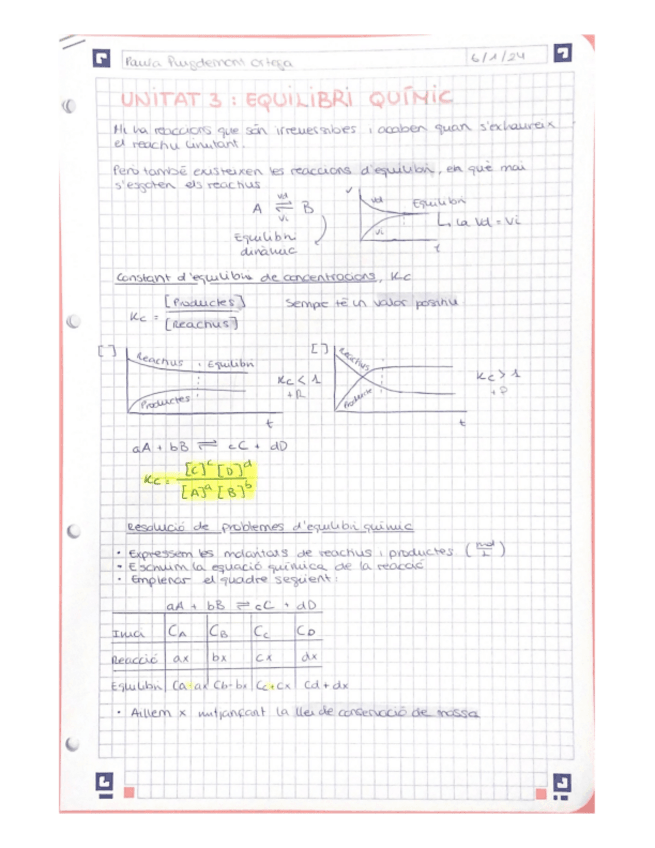 Paula Puigdemont Ortega
6/1/24
UNITAT 3: EQUILIBRI QUÍMIC
Hi ha reaccions que són irreversibles i acaben quan s'exhaureix
el reactiu limitant.
Però també existeixen les reaccions d'equilibri, en què mai
s'esgoten els reactius
A ⇌ B
Vd
Vi
Equilibri
dinàmic
v
Vd
Vi
Equilibri
la Vd = Vi
t
Constant d'equilibri de concentracions, Kc
Kc = [Productes] / [Reactius]
Sempre té un valor positiu
[ ]
Reactius
Equilibri
Productes
t
Kc < 1
+ R
[ ]
Reactius
Productes
t
Kc > 1
+ P
aA + bB ⇌ cC + dD
Kc = [C]^c [D]^d / [A]^a [B]^b
Resolució de problemes d'equilibri químic
• Expressem les molaritats de reactius i productes (mol/L)
• Escrivim la equació química de la reacció
• Emplenar el quadre següent:
aA + bB ⇌ cC + dD
Inici CA CB Cc CD
Reacció ax bx cx dx
Equilibri Ca-ax Cb-bx Cc+cx Cd+dx
• Aïllem x mitjançant la llei de conservació de massa